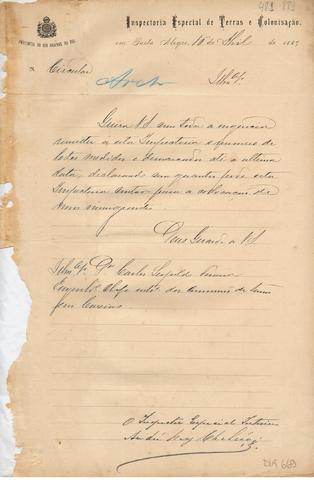 481 883
Inspectoria Especial de Terras e Colonisação.
PROVINCIA DO RIO GRANDE DO SUL.
em Porto Alegre, 10 de Abril de 188
Nº Circular
Arch
Illmo Sr.
Queira VS com toda a urgencia
remetter á esta Inspectoria o numero de
lotes medidos e demarcados até a ultima
data, declarando com quantos pode esta
Inspectoria contar para a collocação de
immigrantes
Deus Guarde a VS
Illmo Sr. Dr Carlos Leopoldo
Engenho Chefe da Commissão de terras
em Caxias
O Inspector Especial Interino
DIA 663